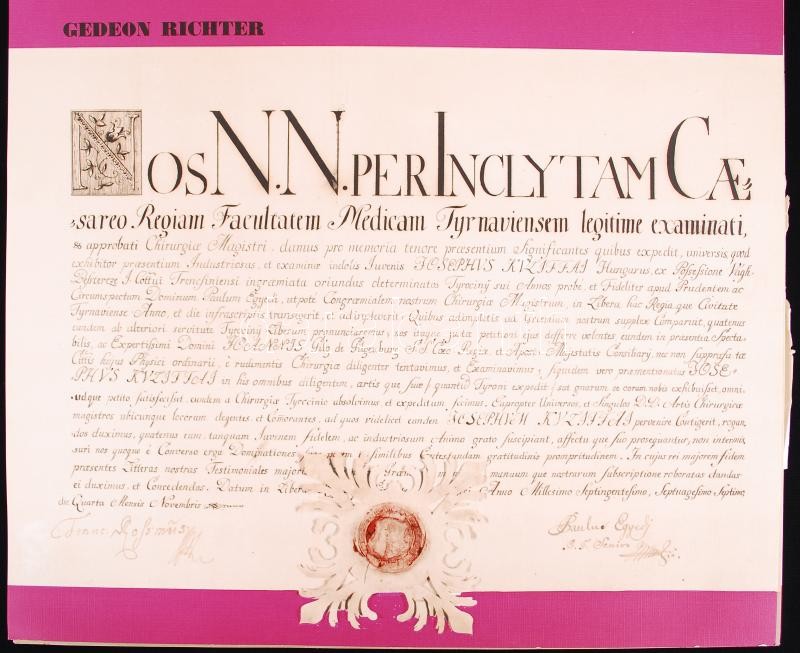 GEDEON RICHTER
NOS N.N. PER INCLYTAM CÆ⸗
⸗sareo Regiam Facultatem Medicam Tyrnaviensem legitime examinati,
& approbati Chirurgiæ Magistri, damus pro memoria tenore præsentium Significantes quibus expedit, universis, quod
exhibitor præsentium Industriosus, et examinæ indolis Iuvenis JOSEPHVS KVZITTAI Hungarus, ex Possessione Vágh
I. Cottui Trenchiniensi ingræmiata oriundus determinatos Tyrocinij sui Annos probe, et Fideliter apud Prudentem ac
Circumspectum Dominum Paulum Egyedi, utpote Congræmialem nostrum Chirurgiæ Magistrum, in Libera, hac Regia que Civitate
Tyrnaviense Anno, et die infrascriptis transegerit, et adimpleverit. Quibus adimpletis ad Græmium nostrum supplex Comparuit, quatenus
eundem ab ulteriori servitute Tyrocinij Liberum pronunciaremus, nos itaque juxta petitioni ejus deferre volentes eundem in præsentia Specta⸗
bilis, ac Expertissimi Domini JOANNIS de S. Cæs. Regiæ, et Apost. Majestatis Consiliarij, nec non suprafatæ
Cittis hujus Physici ordinarij, è rudimentis Chirurgiæ diligenter tentavimus, et Examinavimus, siquidem vero præmentionatus JOSE⸗
PHVS KVZITTAI in his omnibus diligentem, artis que suæ quantum Tyroni expedit sat gnarum se coram nobis exhibuisset, omni⸗
busque petito satisfecisset, eundem a Chirurgiæ Tyrocinio absolvimus, et expeditum fecimus. Eapropter Universos, et Singulos D.D. Artis Chirurgicæ
magistros ubicunque locorum degentes, et Comorantes, ad quos videlicet eundem JOSEPHUM KVZITTAI pervenire Contigerit, rogan⸗
dos duximus, quatenus eum, tanquam Juvenem fidelem, ac industriosum Animo grato suscipiant, affectu que suo prosequantur, non intermis⸗
suri nos quoque è Converso erga Dominationes similibus Contestandam gratitudinis promptitudinem. In cujus rei majorem fidem
præsentes Litteras nostras Testimoniales majori manuum que nostrarum subscriptione roboratas dandas
ei duximus, et Concedendas. Datum in Libera Anno Millesimo Septingentesimo, Septuagesimo Septimo,
die Quarta Mensis Novembris
Paulus Egyedj
Senior